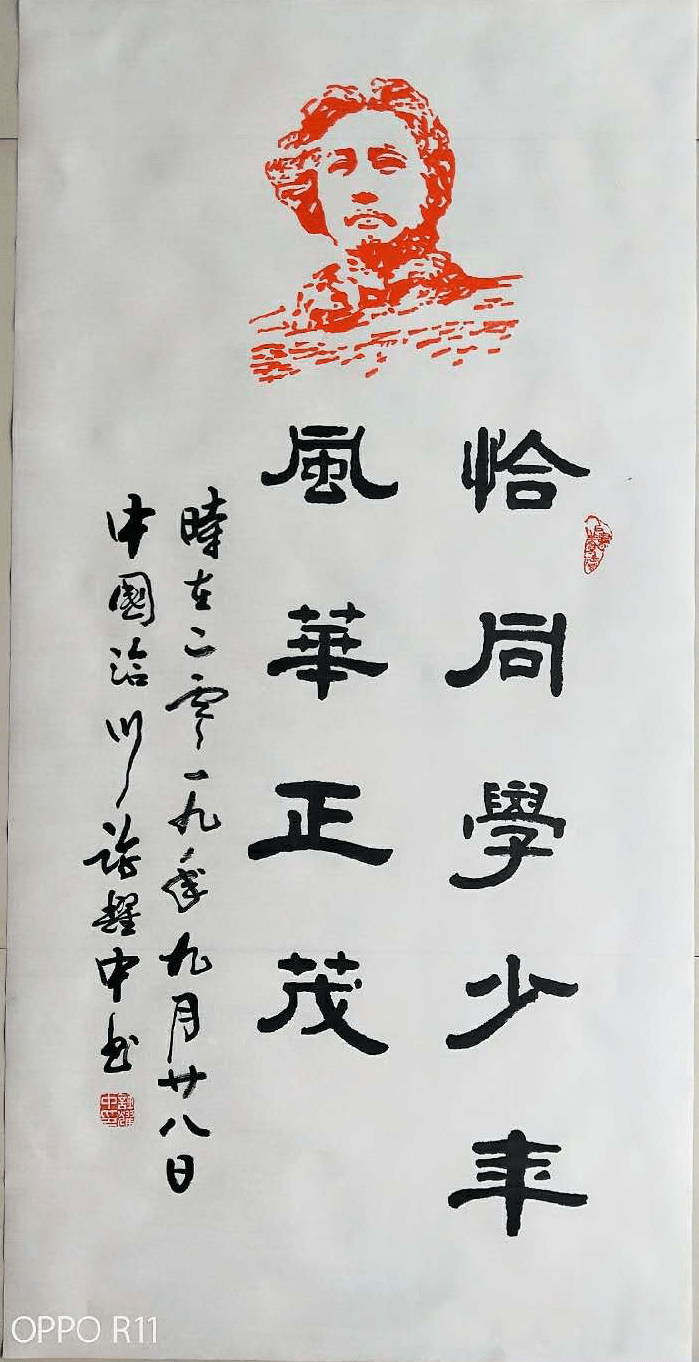 恰同學少年
風華正茂
時在二零一九年九月廿八日
中國洽川許耀中書
OPPO R11